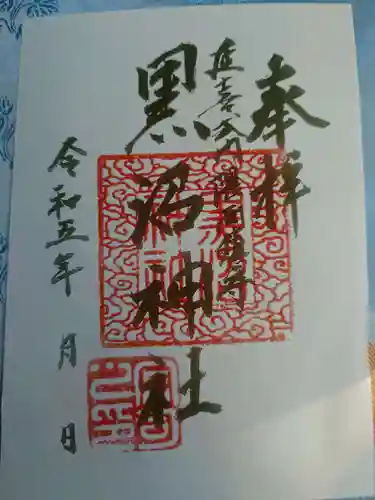 奉拝
延喜式内信夫郡
黒沼神社
令和五年 月 日